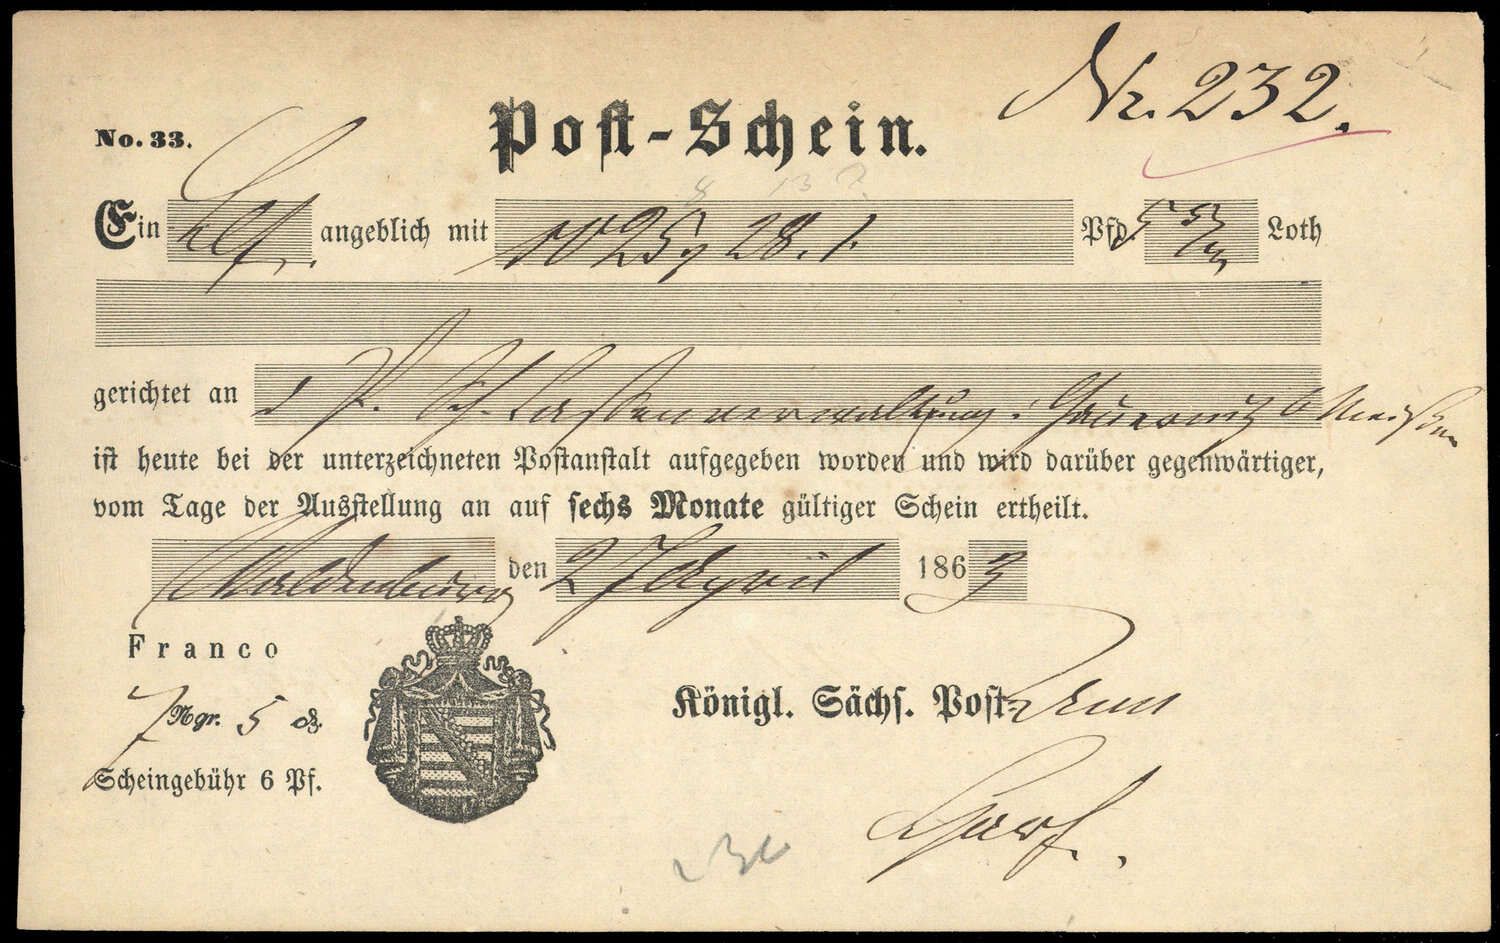 Nr. 232.
No. 33.
Post-Schein.
Ein angeblich mit Pfd. 5 Loth
gerichtet an d
ist heute bei der unterzeichneten Postanstalt aufgegeben worden und wird darüber gegenwärtiger,
vom Tage der Ausstellung an auf sechs Monate gültiger Schein ertheilt.
Waldenburg den 27 April 1863
Franco
7 Ngr. 5 ₰.
Königl. Sächs. Post-
Scheingebühr 6 Pf.